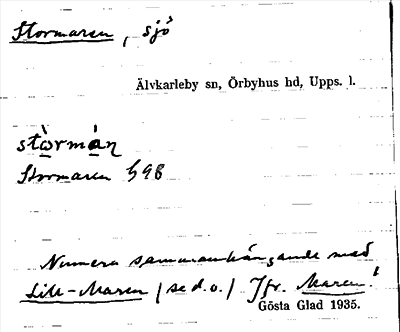 Stormaren, sjö
Älvkarleby sn, Örbyhus hd, Upps. l.
stòrmán
Stormaren G98
Numera sammanhängande med
Lill-Maren (se d.o.) Jfr. Maren!
Gösta Glad 1935.